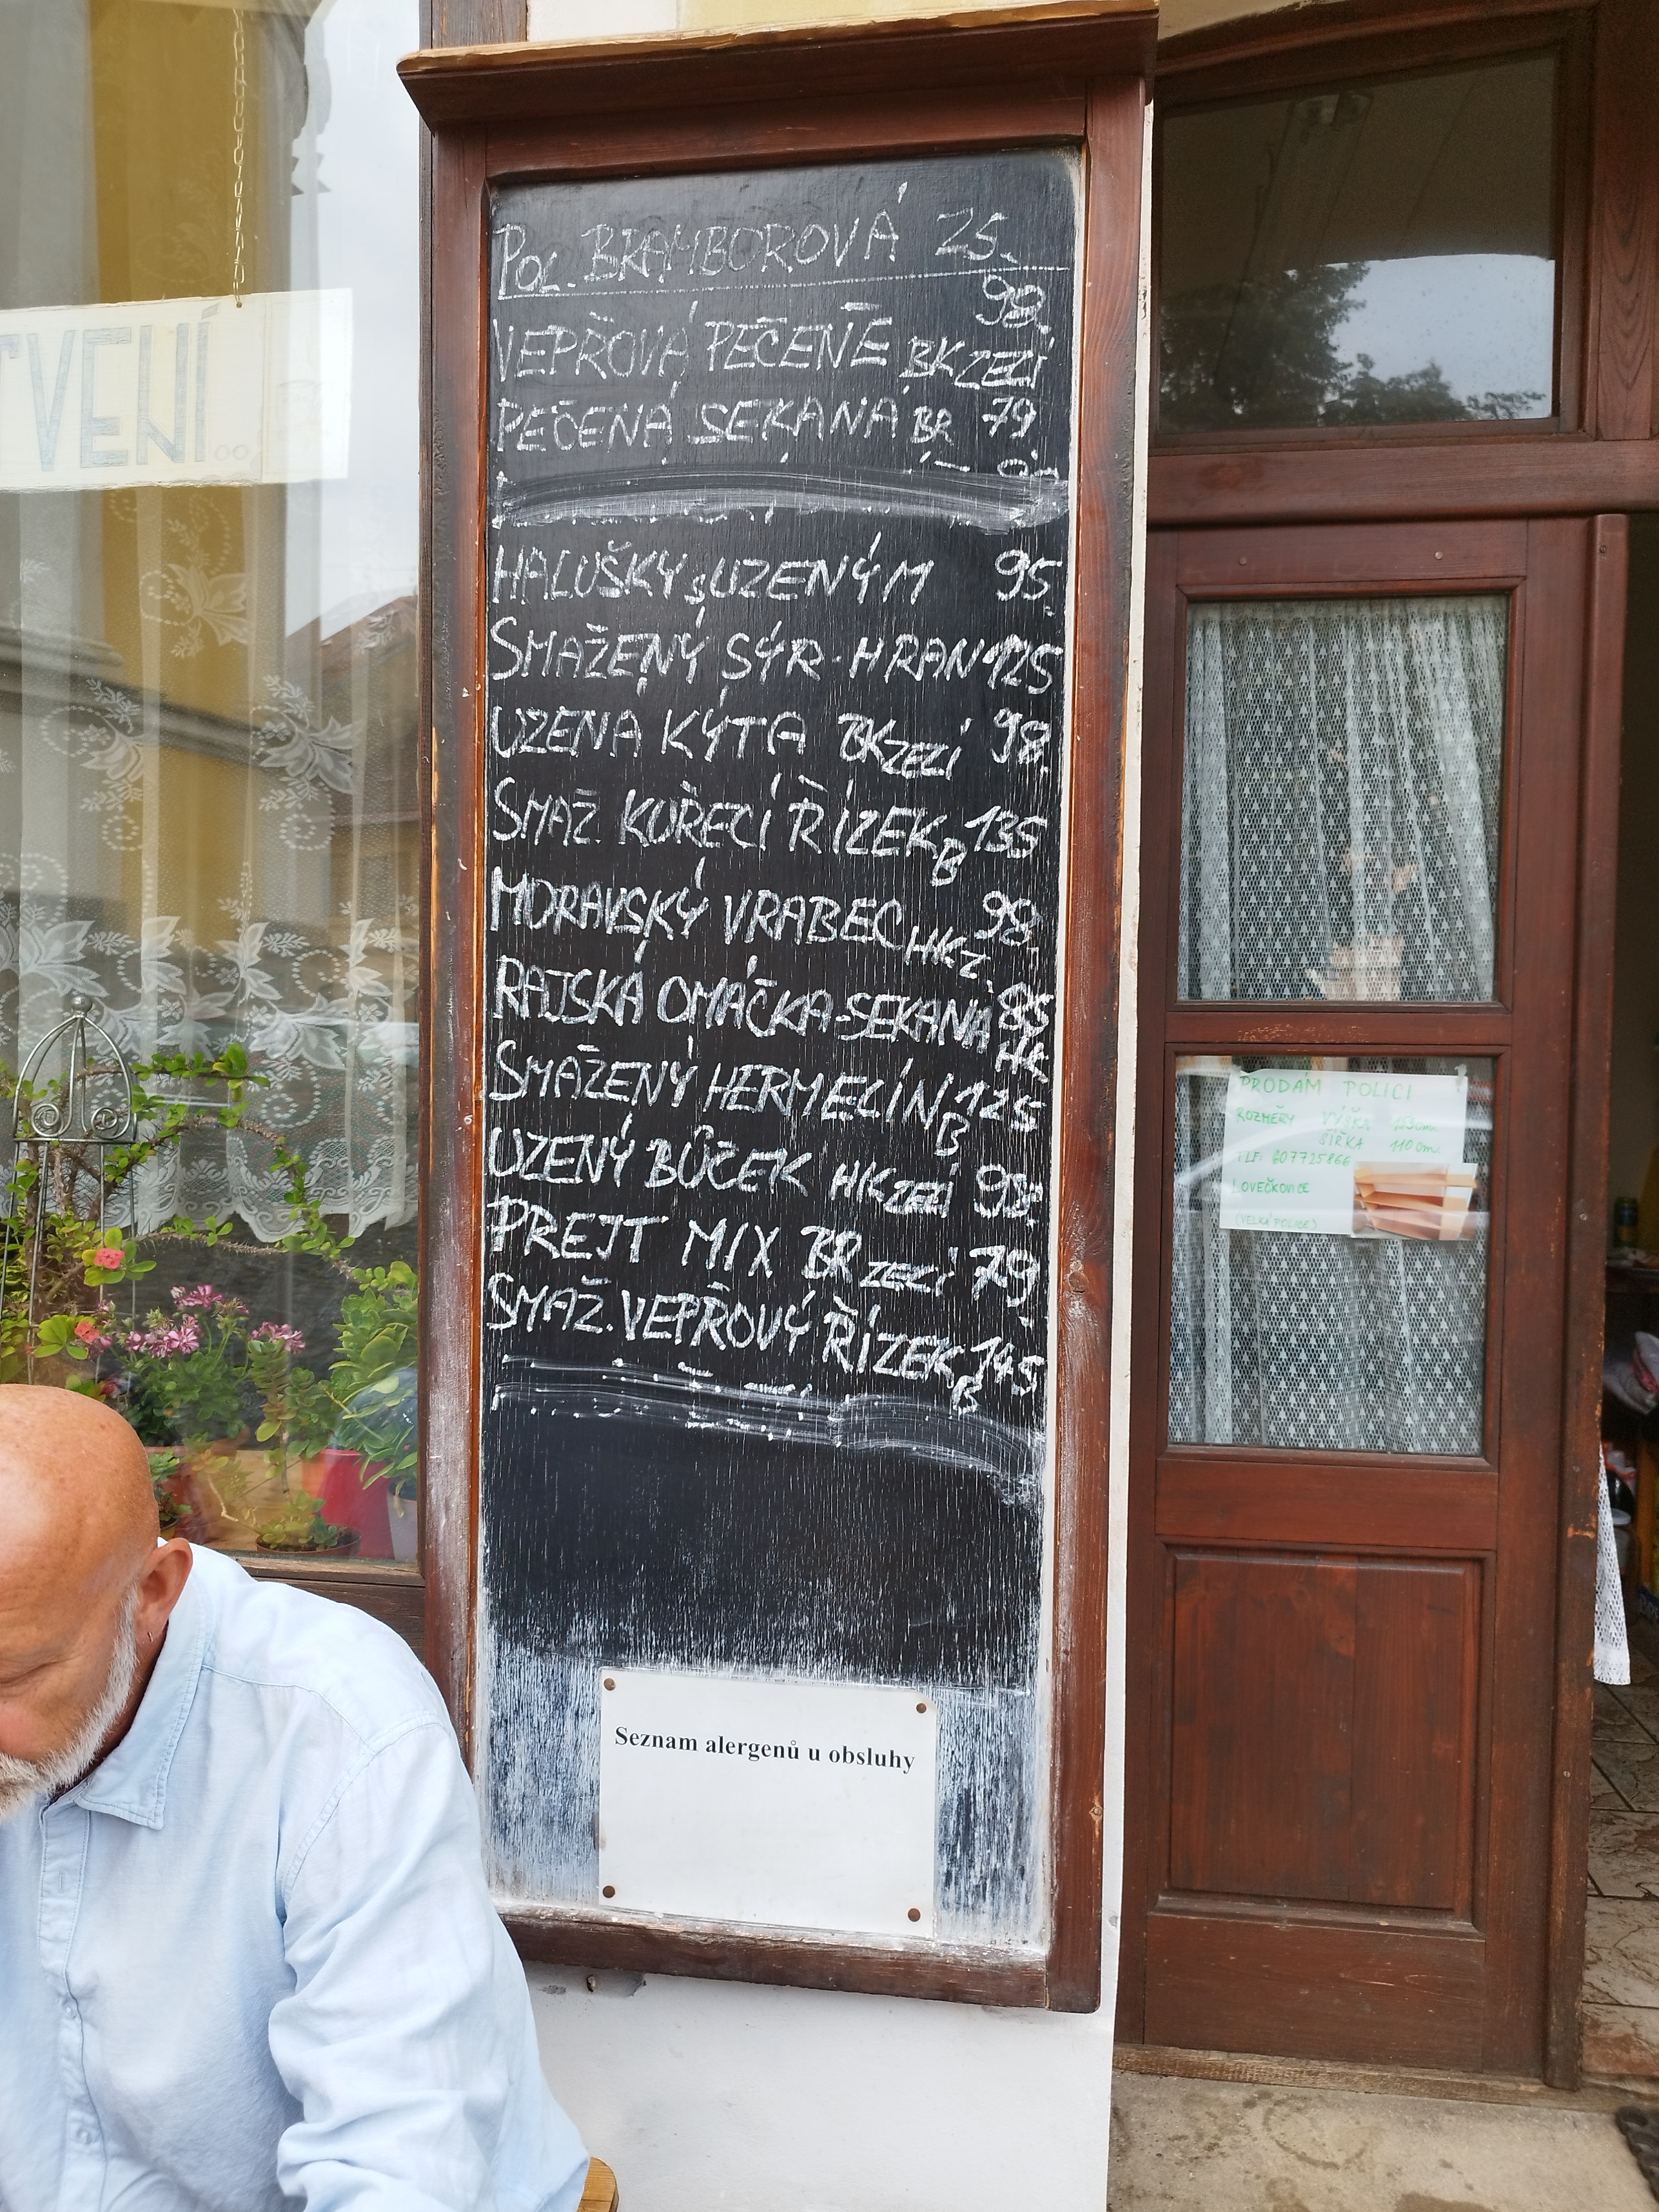 POL. BRAMBOROVÁ 25.
98.
VEPŘOVÁ PEČENĚ BK ZELÍ
PEČENÁ SEKANÁ BR 79.
HALUŠKY s UZENÝM 95.
SMAŽENÝ SÝR - HRAN 125
UZENÁ KÝTA BK ZELÍ 98.
SMAŽ KUŘECÍ ŘÍZEK B 135
MORAVSKÝ VRABEC HK Z. 98.
RAJSKÁ OMÁČKA - SEKANÁ 85
HK
SMAŽENÝ HERMELÍN B 125
UZENÝ BŮČEK HK ZELÍ 98.
PREJT MIX BR ZELÍ 79.
SMAŽ. VEPŘOVÝ ŘÍZEK B 145
Seznam alergenů u obsluhy
TVENÍ...
PRODÁM POLICI
ROZMĚRY VÝŠKA
ŠÍŘKA 110 cm
TLF: 607725866
LOVEČKOVICE
(VELKÉ POLICE)